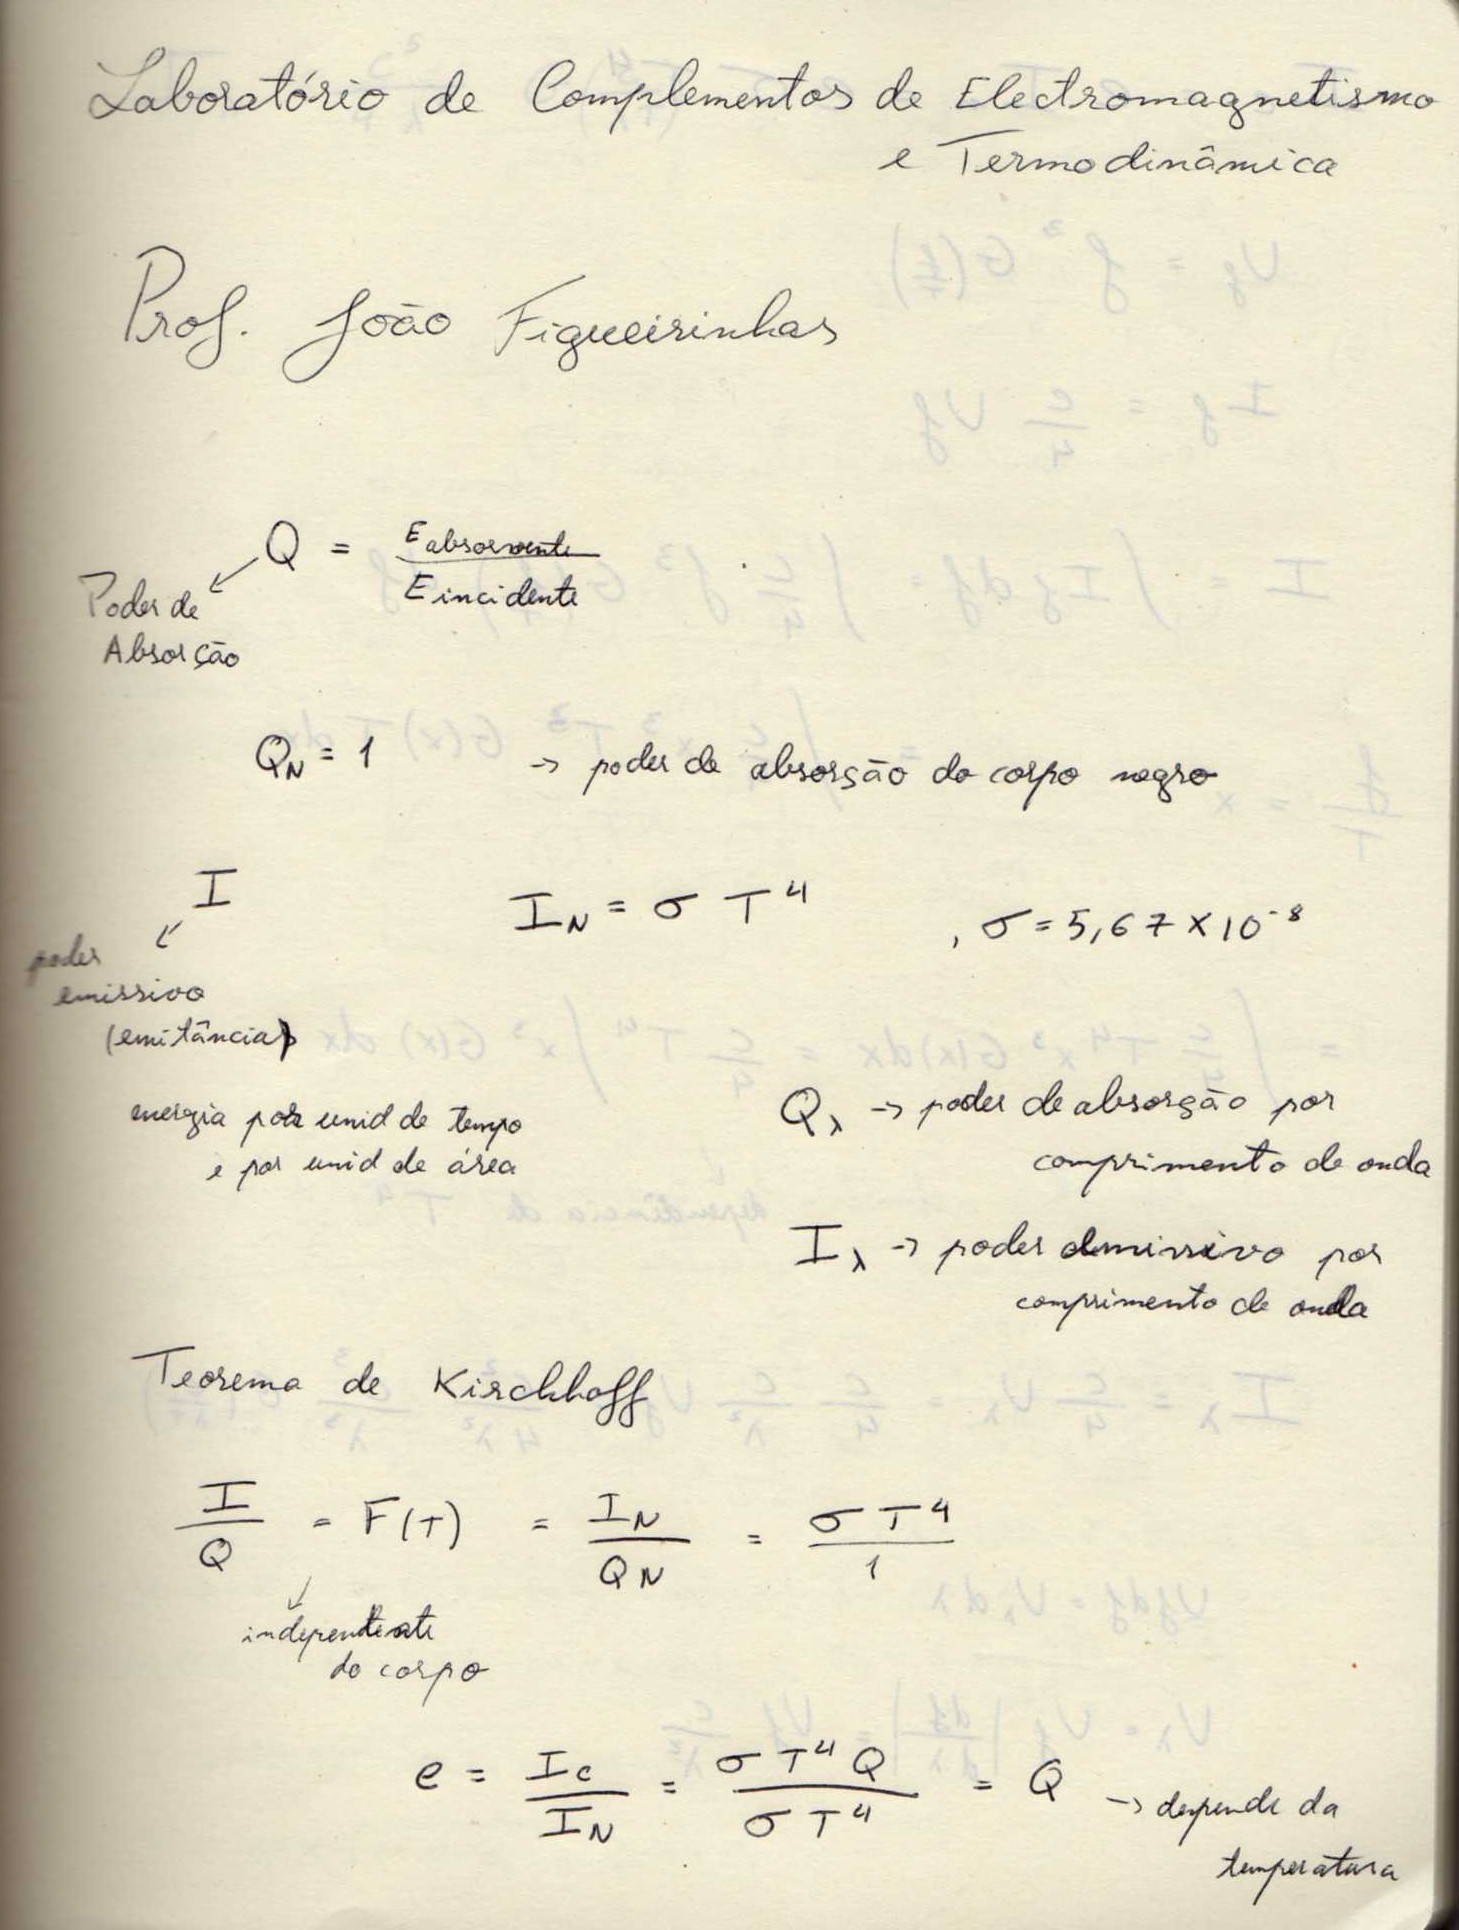 Laboratório de Complementos de Electromagnetismo
e Termodinâmica
Prof. João Figueirinhas
Q = E absorvente / E incidente
Poder de
Absorção
Q_N = 1 → poder de absorção do corpo negro
I I_N = σ T^4 , σ = 5,67 × 10^-8
poder
emissivo
(emitância)
energia por unid de tempo
e por unid de área
Q_λ → poder de absorção por
comprimento de onda
I_λ → poder emissivo por
comprimento de onda
Teorema de Kirchhoff
I / Q = F(T) = I_N / Q_N = σ T^4 / 1
independente
do corpo
e = I_c / I_N = σ T^4 Q / σ T^4 = Q → depende da
temperatura